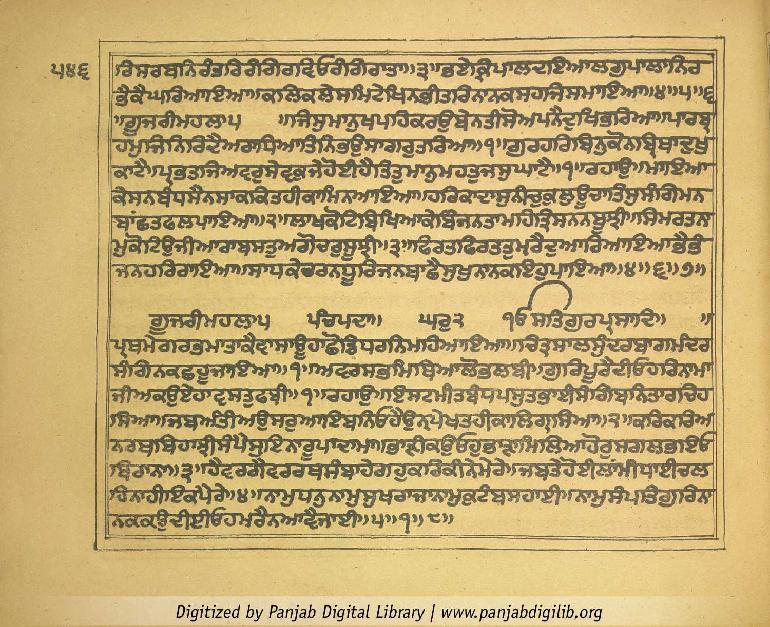 ੫੪੬
ਰਿਸਰਬਨਿਰੰਤਰਿਰੰਗਿਰਵਿਓਰੰਗਿਰਾਤਾ॥੩॥ਭਏਕ੍ਰਿਪਾਲਦਇਆਲਗੁਪਾਲਾਨਿਰ
ਭੈਕੈਘਰਿਆਇਆ॥ਕਲਿਕਲੇਸਮਿਟੇਖਿਨਭੀਤਰਿਨਾਨਕਸਹਜਿਸਮਾਇਆ॥੪॥੫॥੬
॥ਗੂਜਰੀਮਹਲਾ੫ ॥ਜਿਸੁਮਾਨੁਖਪਹਿਕਰਉਬੇਨਤੀਸੋਅਪਨੈਦੁਖਿਭਰਿਆ॥ਪਾਰਬ੍ਰ
ਹਮੁਜਿਨਿਰਿਦੈਅਰਾਧਿਆਤਿਨਿਭਉਸਾਗਰੁਤਰਿਆ॥੧॥ਗੁਰਹਰਿਬਿਨੁਕੋਨਬ੍ਰਿਥਾਦੁਖੁ
ਕਾਟੈ॥ਪ੍ਰਭਤਜਿਅਵਰੁਸੇਵਕੁਜੇਹੋਈਹੈਤਿਤੁਮਾਨੁਮਹਤੁਜਸੁਘਾਟੈ॥੧॥ਰਹਾਉ॥ਮਾਇਆ
ਕੇਸਨਬੰਧਸੈਨਸਾਕਕਿਤਹੀਕਾਮਿਨਆਇਆ॥ਹਰਿਕਾਦਾਸੁਨੀਚਕੁਲੁਊਚਾਤਿਸੁਸੰਗਿਮਨ
ਬਾਂਛਤਫਲਪਾਇਆ॥੨॥ਲਾਖਕੋਟਿਬਿਖਿਆਕੇਬਿੰਜਨਤਾਮਹਿਤ੍ਰਿਸਨਨਬੂਝੀ॥ਸਿਮਰਤਨਾ
ਮੁਕੋਟਿਉਜੀਆਰਾਬਸਤੁਅਗੋਚਰੁਸੂਝੀ॥੩॥ਫਿਰਤਫਿਰਤਤੁਮ੍ਰੈਦੁਆਰਿਆਇਆਭੈਭੰ
ਜਨਹਰਿਰਾਇਆ॥ਸਾਧਕੇਚਰਨਧੂਰਿਜਨਬਾਛੈਸੁਖੁਨਾਨਕਇਹੁਪਾਇਆ॥੪॥੬॥੭॥
ਗੂਜਰੀਮਹਲਾ੫ ਪੰਚਪਦਾ॥ ਘਰੁ੨ ੴਸਤਿਗੁਰਪ੍ਰਸਾਦਿ॥ ॥
ਪ੍ਰਥਮੇਗਰਭਮਾਤਾਕੈਵਾਸਾਊਹਾਛੋਡਿਧਰਨਿਮਹਿਆਇਆ॥ਚਿਤ੍ਰਸਾਲਸੁੰਦਰਬਾਗਮੰਦਰ
ਸੰਗਿਨਕਛਹੂਜਾਇਆ॥੧॥ਅਵਰਸਭਮਿਥਿਆਲੋਭਲਬੀ॥ਗੁਰਿਪੂਰੈਦੀਓਹਰਿਨਾਮਾ
ਜੀਅਕਉਏਹਾਵਸਤੁਫਬੀ॥੧॥ਰਹਾਉ॥ਇਸਟਮੀਤਬੰਧਪਸੁਤਭਾਈਸੰਗਿਬਨਿਤਾਰਚਿਹ
ਸਿਆ॥ਜਬਅੰਤੀਅਉਸਰੁਆਇਬਨਿਓਹੈਉਨਪੇਖਤਹੀਕਾਲਿਗ੍ਰਸਿਆ॥੨॥ਕਰਿਕਰਿਅ
ਨਰਥਬਿਹਾਝੀਸੰਪੈਸੁਇਨਾਰੂਪਾਦਾਮਾ॥ਭਾੜੀਕਉਓਹੁਭਾੜਾਮਿਲਿਆਹੋਰੁਸਗਲਭਇਓ
ਬਿਰਾਨਾ॥੩॥ਹੈਵਰਗੈਵਰਰਥਸੰਬਾਹੇਗਹੁਕਰਿਕੀਨੇਮੇਰੇ॥ਜਬਤੇਹੋਈਲਾਂਮੀਧਾਈਚਲ
ਹਿਨਾਹੀਇਕਪੈਰੇ॥੪॥ਨਾਮੁਧਨੁਨਾਮੁਸੁਖਰਾਜਾਨਾਮੁਕੁਟੰਬਸਹਾਈ॥ਨਾਮੁਸੰਪਤਿਗੁਰਿਨਾ
ਨਕਕਉਦੀਈਓਹਮਰੈਨਆਵੈਜਾਈ॥੫॥੧॥੮॥
Digitized by Panjab Digital Library | www.panjabdigilib.org